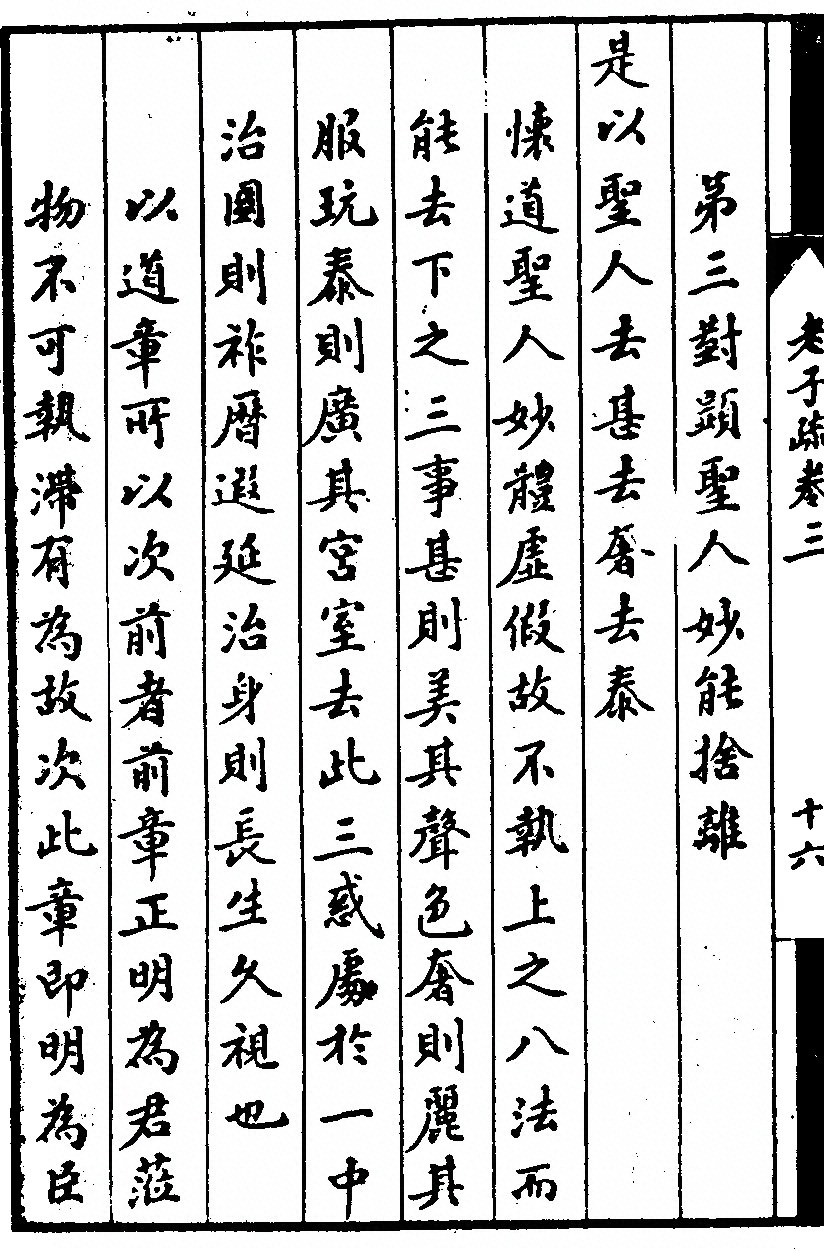 老子疏卷三
十六
第三對顕聖人妙能捨離
是以聖人去甚去奢去泰
懷道聖人妙體虛假故不執上之八法而
能去下之三事甚則美其聲色奢則麗其
服玩泰則廣其宮室去此三惑處於一中
治國則祚曆遐延治身則長生久視也
以道章所以次前者前章正明為君蒞
物不可執滯有為故次此章即明為臣